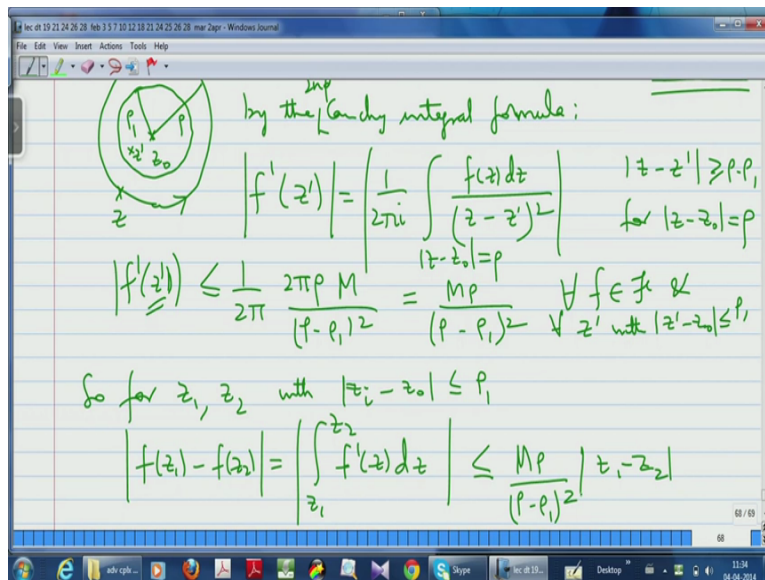 lec dt 19 21 24 26 28 feb 3 5 7 10 12 18 21 24 25 26 28 mar 2apr - Windows Journal
File Edit View Insert Actions Tools Help
2np
by the Cauchy integral formula:
ρ₁ ρ
z' z₀
z
|f'(z')| = |1/2πi ∫_{|z-z₀|=ρ} f(z)dz/(z-z')²| |z-z'| ≥ ρ-ρ₁
for |z-z₀|=ρ
|f'(z')| ≤ 1/2π 2πρ M/(ρ-ρ₁)² = Mρ/(ρ-ρ₁)² ∀ f∈ℱ &
∀ z' with |z'-z₀| ≤ ρ₁
So for z₁, z₂ with |zᵢ-z₀| ≤ ρ₁
|f(z₁) - f(z₂)| = |∫_{z₁}^{z₂} f'(z)dz| ≤ Mρ/(ρ-ρ₁)² |z₁-z₂|
68 / 69
68
adv cplx ...
Skype
lec dt 19...
Desktop
11:34
04-04-2014